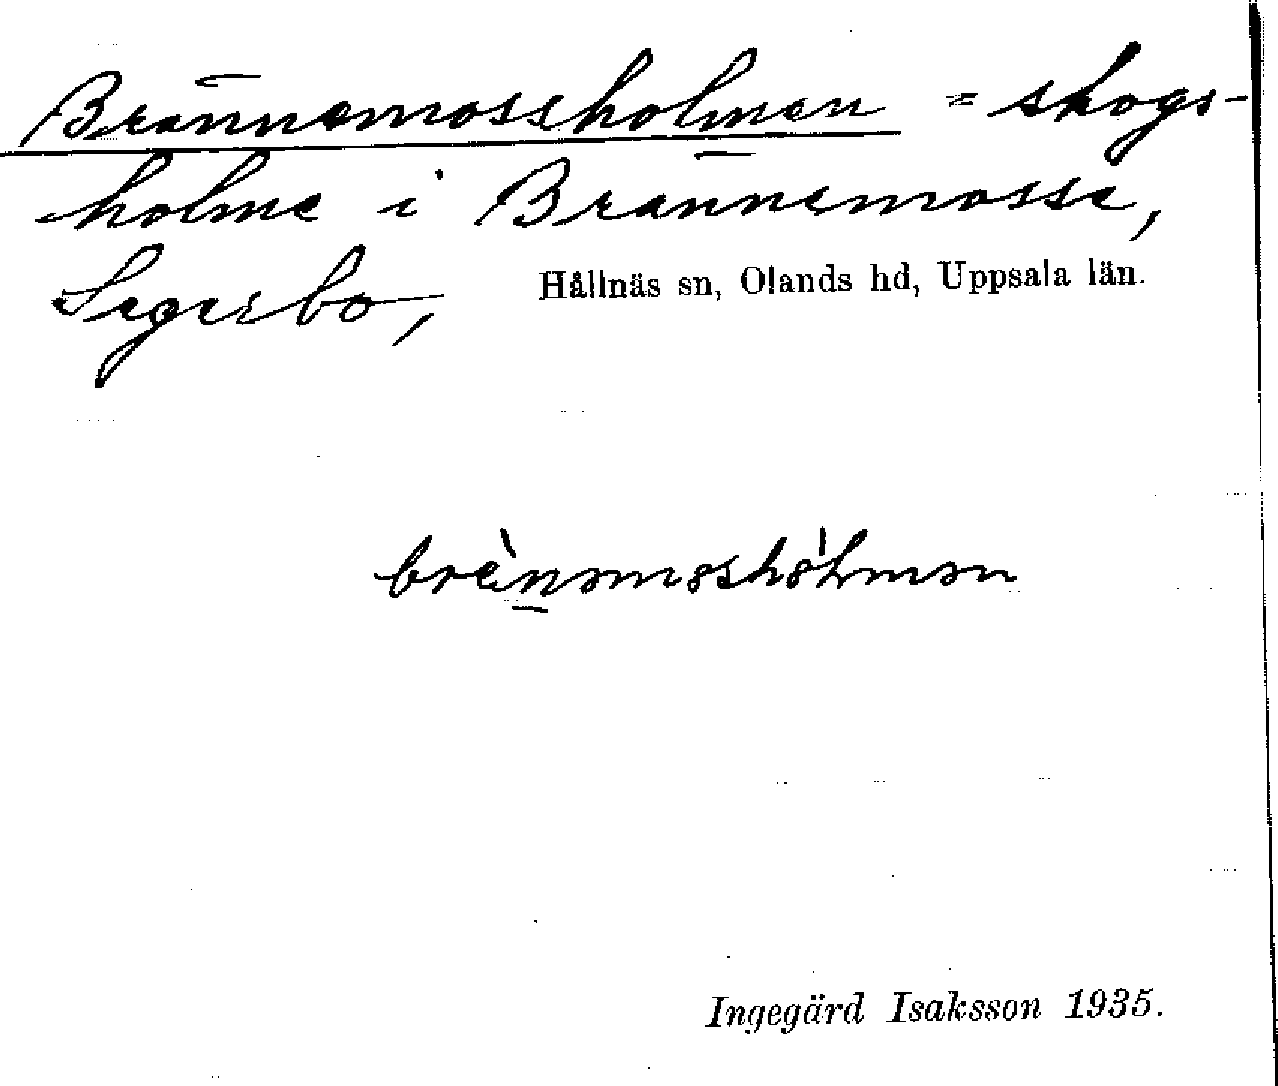 Brännemosseholmen = skogs-
holme i Brännemosse,
Segersbo, Hållnäs sn, Olands hd, Uppsala län.
Ingegärd Isaksson 1935.